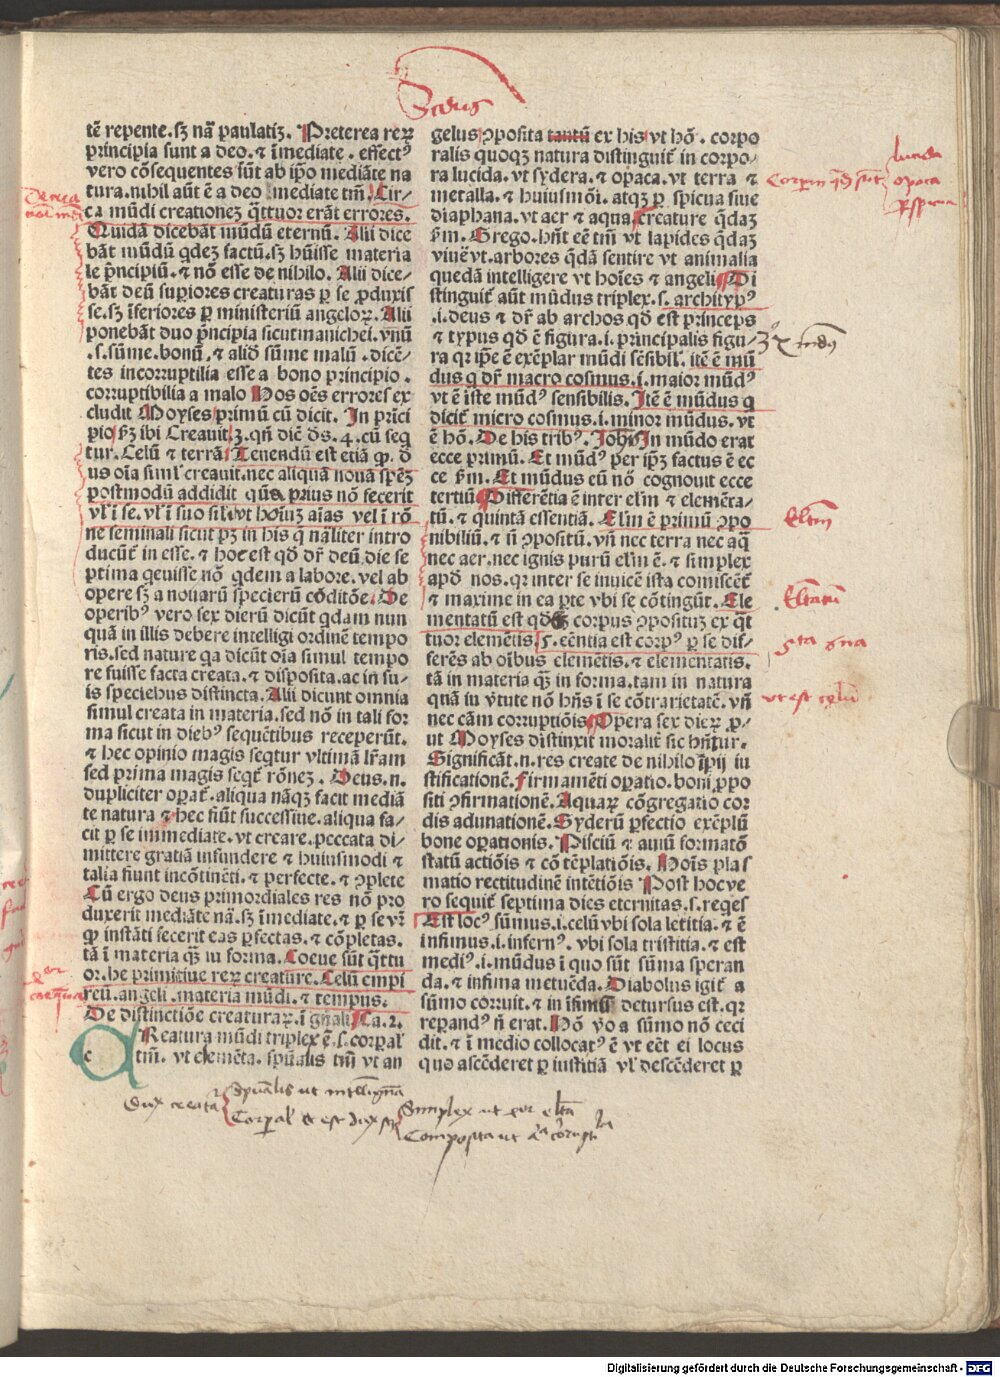 Secundus
tē repente. sꝫ nā paulatiꝫ. Preterea reꝝ
principia sunt a deo. ⁊ īmediate. effectꝰ
vero cōsequentes sūt ab ip̄o mediāte na
tura. nihil aūt ē a deo mediate tm̄. Cir⸗
ca mūdi creationeꝫ q̄ttuor erāt errores.
Quidā dicebāt mūdū eternū. Alii dice
bāt mūdū qdeꝫ factū. sꝫ hūisse materia
le p̄ncipiū. ⁊ nō esse de nihilo. Alii dice⸗
bāt deū sup̄iores creaturas ꝑ se ꝓduxis
se. sꝫ īferiores ꝑ ministeriū angeloꝝ. Alii
ponebāt duo p̄ncipia sicut manichei. vnū
.s. sūme. bonū, ⁊ aliō sūme malū. dicē⸗
tes incorruptilia esse a bono principio.
corruptibilia a malo Hos oēs errores ex
cludit Moyses primū cū dicit. In prīci
pio ẞꝫ ibi Creauit. 3. qn̄ dic̄ ds. 4. cū seq̄
tur. Celū ⁊ terrā Tenendū est etiā ꝙ. d̄
us oīa siml̓ creauit. nec aliquā nouā spēꝫ
postmodū addidit quā prius nō fecerit
vl̓ ī se. vl̓ ī suo sil̓i vt hoīuꝫ aīas vel ī rō
ne seminali sicut pꝫ in his q̄ nāliter intro
ducūt̄ in esse. ⁊ hoc est qd̄ dr̄ deū die se
ptima qeuisse nō qdem a labore. vel ab
opere sꝫ a nouarū specierū cōditōe. De
operibꝰ vero sex dierū dicūt qdam nun
quā in illis debere intelligi ordinē tempo
ris. sed nature qa dicūt oīa simul tempo
re fuisse facta creata. ⁊ disposita. ac in su⸗
is speciebus distincta. Alii dicunt omnia
simul creata in materia. sed nō in tali for
ma sicut in diebꝰ sequētibus receperūt.
⁊ hec opinio magis seqtur vltimā lr̄am
sed prima magis seqt̄ rōneꝫ. Deus. n.
dupliciter oꝑat̄. aliqua nāqꝫ facit mediā
te natura ⁊ hec fiūt successiue. aliqua fa⸗
cit ꝑ se immediate. vt creare. peccata di⸗
mittere gratiā infundere ⁊ huiusmodi ⁊
talia fiunt incōtinēti. ⁊ perfecte. ⁊ ꝯplete
Cū ergo deus primordiales res nō pro
duxerit mediāte nā. sꝫ īmediate. ⁊ ꝑ se vr̄
ꝙ instāti fecerit eas ꝑfectas. ⁊ cōpletas.
tā ī materia q̄ꝫ iu forma. Coeue sūt q̄ttu
or. he primitiue reꝝ creature. Celū empi
reū. angeli. materia mūdi. ⁊ tempus.
De distinctiōe creaturaꝝ. ī gn̄ali Ca. 2.
c Reatura mūdi triplex ē. s. corꝑal̓
tm̄. vt elemēta. spūalis tm̄ vt an
gelus ꝯposita tantū ex his vt hō. corpo
ralis quoqꝫ natura distinguit̄ in corpo⸗
ra lucida. vt sydera. ⁊ opaca. vt terra ⁊
metalla. ⁊ huiusmōi. atqꝫ ꝑ spicua siue
diaphana. vt aer ⁊ aqua Creature qdaꝫ
ẞm. Grego. hn̄t eē tm̄ vt lapides qdaꝫ
viuē vt. arbores qdā sentire vt animalia
quedā intelligere vt hoīes ⁊ angeli Di
stinguit̄ aūt mūdus triplex. s. architypꝰ
.i. deus ⁊ dr̄ ab archos qd̄ est princeps
⁊ typus qd̄ ē figura. i. principalis figu⸗
ra qr ip̄e ē exēplar mūdi sēsibil̓. itē ē mū
dus q dr̄ macro cosmus. i. maior mūdꝰ
vt ē iste mūdꝰ sensibilis. Itē ē mūdus q
dicit̄ micro cosmus. i. minor mūdus. vt
ē hō. De his tribꝰ. Joh̄ In mūdo erat
ecce primū. Et mūdꝰ per ip̄ꝫ factus ē ec
ce ẞm. Et mūdus eū nō cognouit ecce
tertiū Differētia ē inter elm̄ ⁊ elemēta⸗
tū. ⁊ quintā essentiā. Elm̄ ē primū ꝯpo
nibiliū. ⁊ n̄ ꝯpositū. vn̄ nec terra nec aq̄
nec aer. nec ignis purū elm̄ ē. ⁊ simplex
apd̄ nos. qr inter se inuicē ista comiscēt̄
⁊ maxime in ea ꝑte vbi se cōtingūt. Ele
mentatū est qd̄ corpus ꝯpositū ex q̄t
tuor elemētis. 5. eēntia est corpꝰ ꝑ se dif⸗
ferēs ab oībus elemētis. ⁊ elementatis.
tā in materia q̄ꝫ in forma. tam in natura
quā iu v̓tute nō hn̄s ī se cōtrarietatē. vn̄
nec cām corruptiōis Opera sex dieꝝ ꝓ⸗
ut Moyses distinxit moralit̄ sic hn̄tur.
Significāt. n. res create de nihilo īpij iu
stificationē. Firmamēti oꝑatio. boni ꝓpo
siti ꝯfirmationē. Aquaꝝ cōgregatio cor
dis adunationē. Syderū ꝑfectio exēplū
bone oꝑationis. Pisciū ⁊ auiū formatō
statū actiōis ⁊ cō tēplatiōis. Hoīs plas
matio rectitudinē intētiōis Post hoc ve
ro sequit̄ septima dies eternitas. s. reqes
Est locꝰ sūmus. i. celū vbi sola letitia. ⁊ ē
infimus. i. infernꝰ. vbi sola tristitia. ⁊ est
mediꝰ. i. mūdus ī quo sūt sūma speran
da. ⁊ infima metuēda. Diabolus igit̄ a
sūmo corruit. ⁊ in īfimū detursus est. qr
reꝑandꝰ n̄ erat. Hō v̓o a sūmo nō ceci
dit. ⁊ ī medio collocatꝰ ē vt eēt ei locus
quo ascēderet ꝑ iustitiā vl̓ descēderet ꝑ
lucida
opaca
Eltm̄
vt est celū
Digitalisierung gefördert durch die Deutsche Forschungsgemeinschaft - DFG